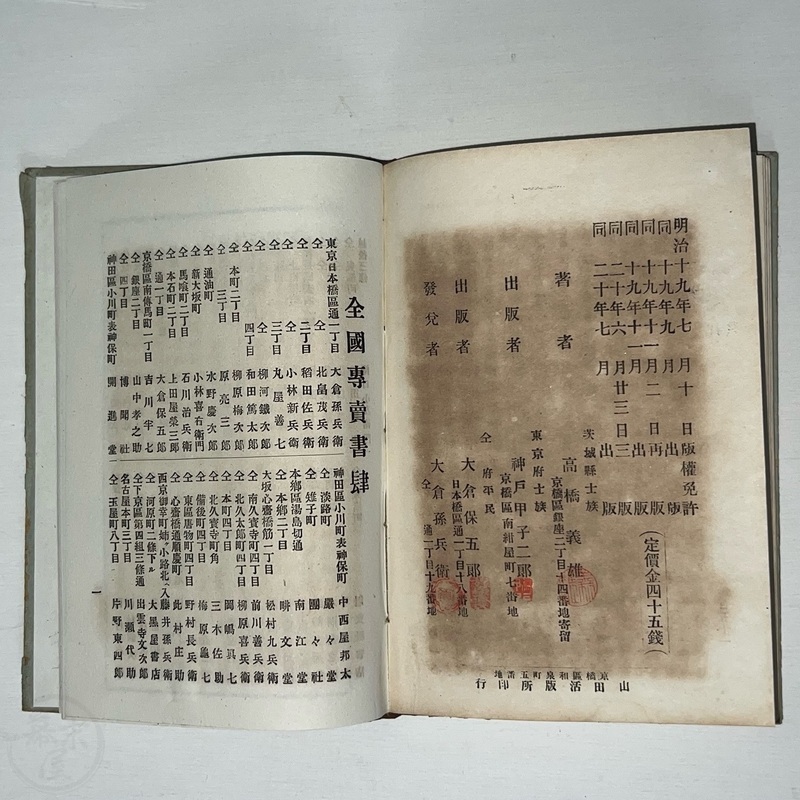 明治十九年七月十日版權免許
同十九年九月出版
同十九年十一月二日再版
同十九年十一月出版
同二十年六月廿三日三版
同二十年七月出版
(定價金四十五錢)
著者
茨城縣士族
高橋義雄
京橋區銀座二丁目十四番地寄留
出版者
東京府士族
神戸甲子二郎
京橋區南紺屋町七番地
出版者
仝府平民
大倉保五郎
日本橋區通一丁目十八番地
發兌者
大倉孫兵衛
仝通一丁目十九番地
京橋區和泉町五番地
山田活版所印行
全國專賣書肆
東京日本橋區通一丁目 大倉孫兵衛
仝 仝 北畠茂兵衛
仝 二丁目 稻田佐兵衛
仝 仝 小林新兵衛
仝 三丁目 丸屋善七
仝 仝 柳河鐵次郎
仝 四丁目 和田篤太郎
仝 本町二丁目 柳原梅次郎
仝 三丁目 原亮三郎
仝 通油町 水野慶次郎
仝 新大坂町 小林喜右衛門
仝 馬喰町二丁目 石川治兵衛
仝 本石町二丁目 上田屋榮三郎
仝 通一丁目 大倉保五郎
京橋區南傳馬町一丁目 吉川半七
仝 銀座二丁目 山中孝之助
仝 四丁目 博聞社
神田區小川町表神保町 開進堂
神田區小川町表神保町 中西屋邦太
仝 淡路町 巖々堂
仝 雉子町 團々社
本鄉區湯島切通 南江堂
仝 本鄉二丁目 啡文堂
大坂心齋橋筋一丁目 松村九兵衛
仝 南久寳寺町四丁目 前川善兵衛
仝 北久太郎町四丁目 柳原喜兵衛
仝 本町四丁目 岡嶋眞七
仝 北久寳寺町角 三木佐助
仝 備後町四丁目 梅原龜七
仝 東區唐物町四丁目 野村長兵衛
仝 心齋橋通順慶町 此村庄助
西京御幸町姉小路北へ入 藤井孫兵衛
仝 河原町二條下ル 大黑屋書店
仝 下京區第四組三條通 出雲寺文次郎
名古屋本町三丁目 川瀬代助
仝 玉屋町八丁目 片野東四郎